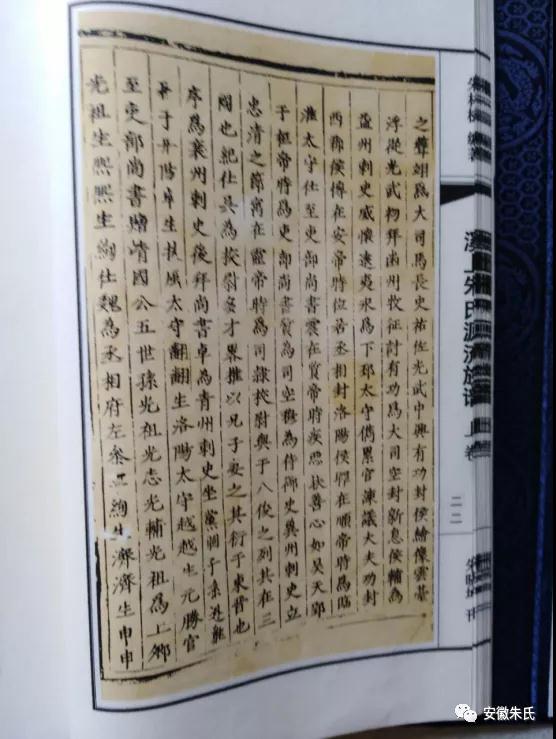 之聲翊爲大司馬長史祐佐光武中興有功封侯繪像雲臺
浮從光武初拜幽州牧征討有功爲大司空封新息侯輔爲
益州刺史威懷遠夷永爲下邳太守儁累官諫議大夫功封
西鄉侯博在安帝時位若丞相封洛陽侯 在順帝時爲臨
淮太守仕至吏部尚書雲在質帝時疾惡扶善心如昊天鄒
于桓帝時爲吏部尚書質爲司空穆為侍御史冀州刺史立
忠清之節寓在靈帝時爲司隸挍尉與于八俊之列其在三
國也紀仕吳為挍尉多才畧推以兄子妻之其衍于東晉也
序爲襄州刺史後拜尚書卓為青州刺史坐黨錮子孫避難
丹陽卓生扶風太守翻翻生洛陽太守越越生元勝官
至吏部尚書贈靖國公五世孫光祖光志光輔光祖爲上鄉
光祖生熙熙生絢仕魏為丞相府左參 絢生濟濟生申申
溪上朱氏源流族譜 上卷
二二
安徽朱氏